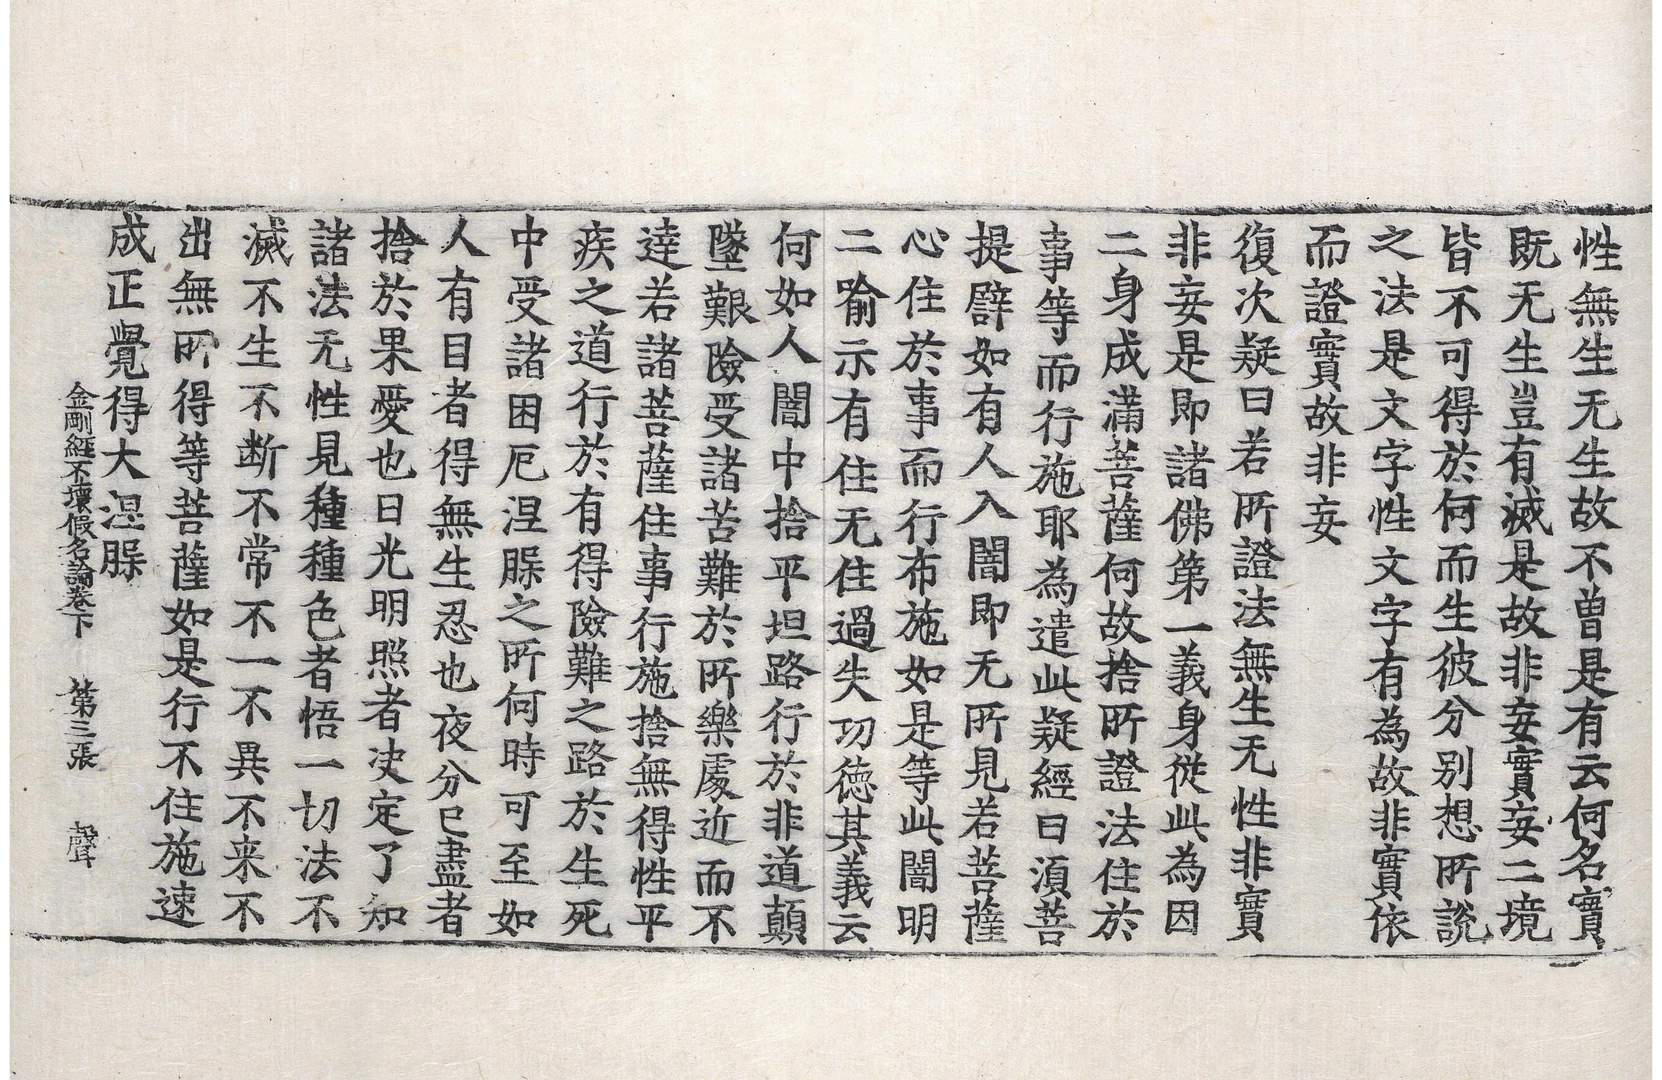 性無生无生故不曾是有云何名實
既无生豈有滅是故非妄實妄二境
皆不可得於何而生彼分別想所說
之法是文字性文字有為故非實依
而證實故非妄
復次疑曰若所證法無生无性非實
非妄是即諸佛第一義身從此為因
二身成滿菩薩何故捨所證法住於
事等而行施耶為遣此疑經曰湏菩
提譬如有人入闇即无所見若菩薩
心住於事而行布施如是等此闇明
二喻示有住无住過失功德其義云
何如人闇中捨平坦路行於非道顛
墜艱險受諸苦難於所樂處近而不
達若諸菩薩住事行施捨無得性平
疾之道行於有得險難之路於生死
中受諸困厄涅槃之所何時可至如
人有目者得無生忍也夜分已盡者
捨於果愛也日光明照者决定了知
諸法无性見種種色者悟一切法不
滅不生不断不常不一不異不来不
出無所得等菩薩如是行不住施速
成正覺得大涅槃
金剛經不壞假名論卷下 第三張 聲